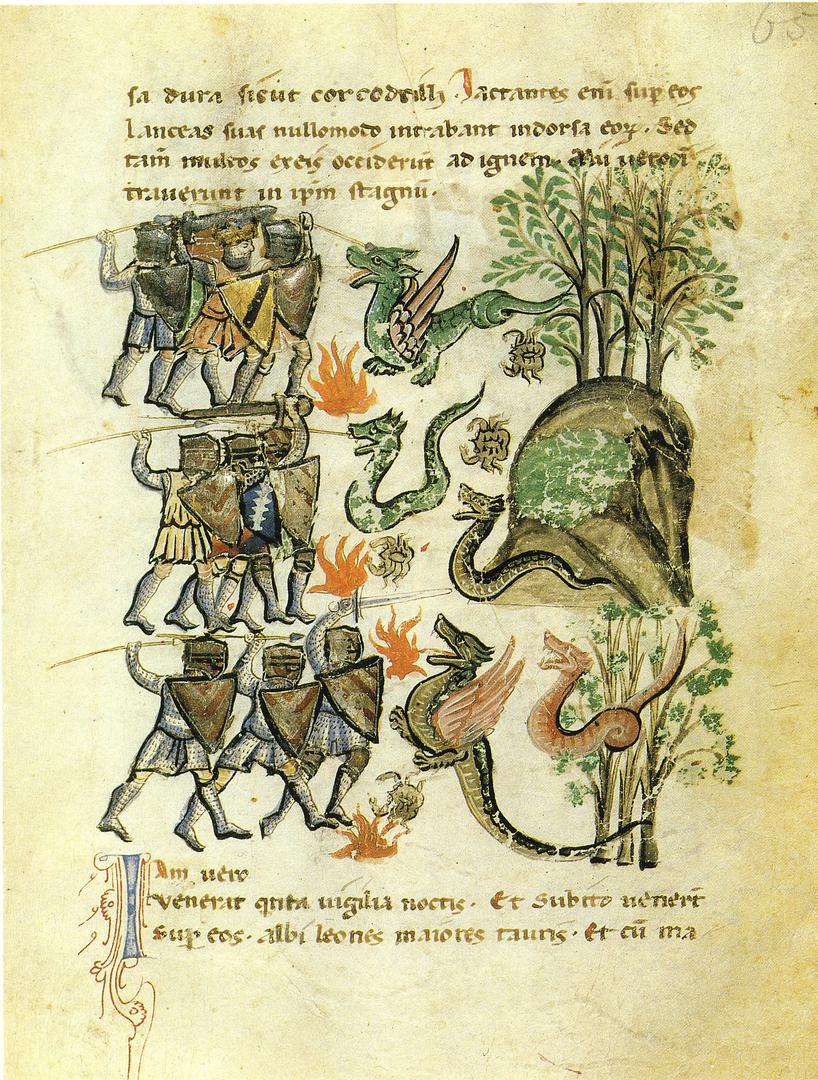 65
sa dura sicut corcodrilli. Jactantes eni sup eos
lanceas suas nullomodo intrabant indorsa eoꝝ. Sed
tam̄ multos exeis occiderūt ad ignem. Alii vero
traverunt in ip̄m stagnū.
Iam vero
venerat qnta vigilia noctis. Et Subito venerūt
Sup eos. albi leones maiores tauris. Et cū ma